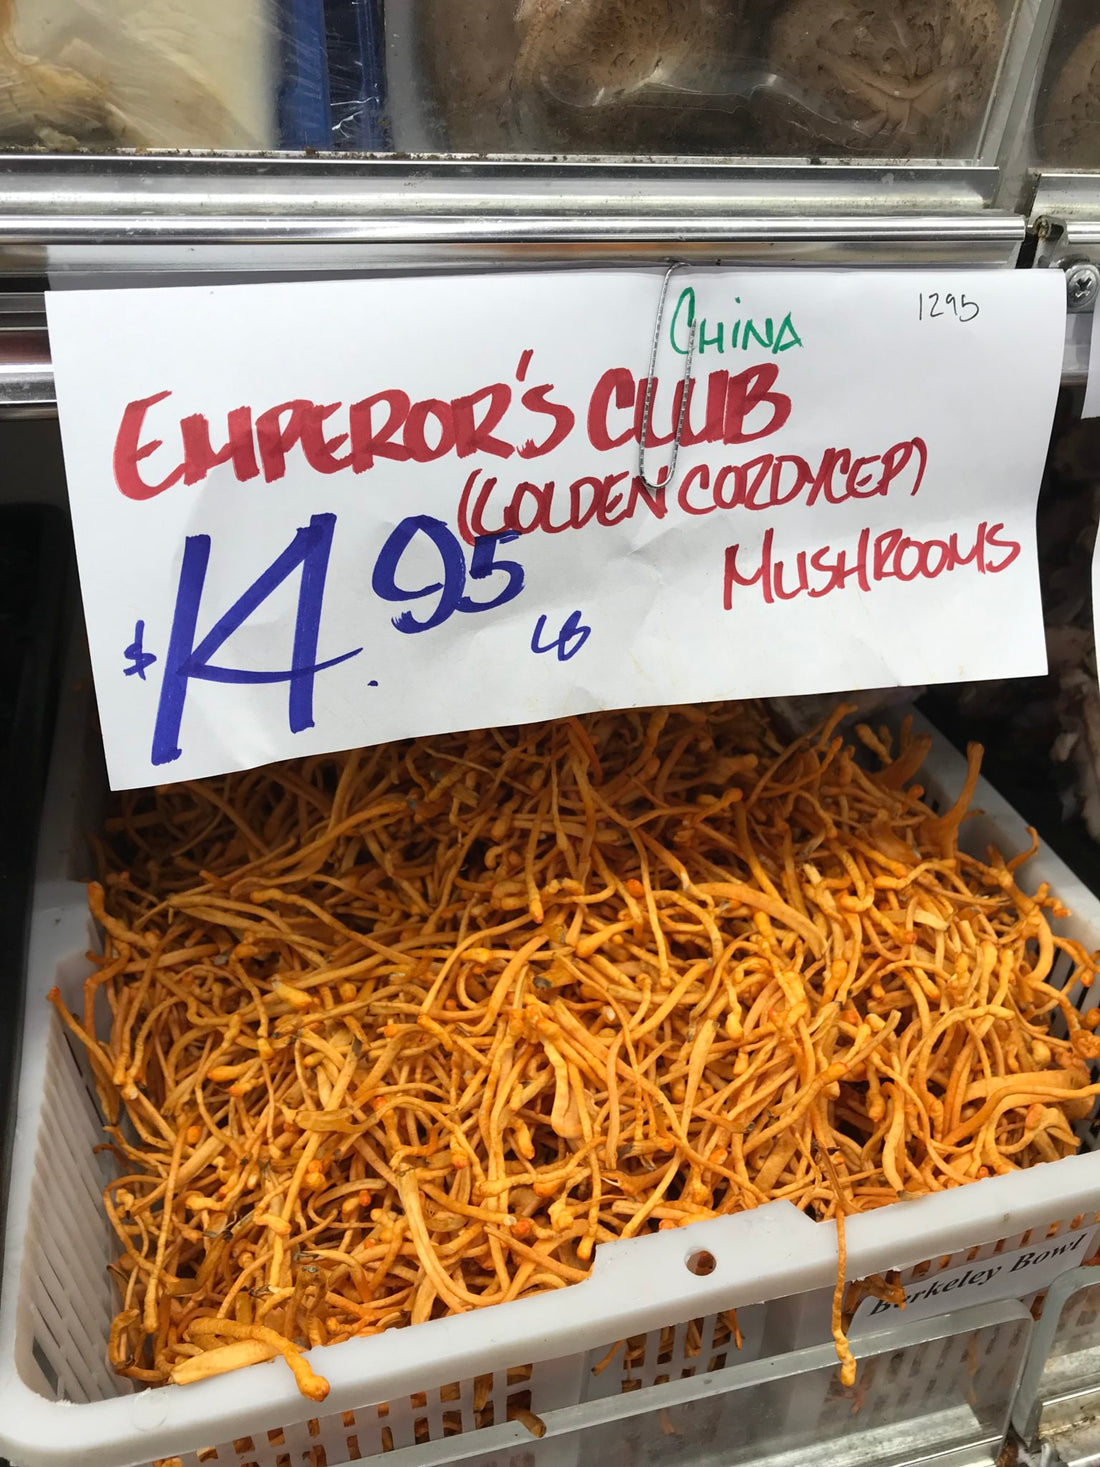 CHINA 1295
EMPEROR'S CLUB
(GOLDEN CORDYCEP)
MUSHROOMS
$14.95 LB
Berkeley Bowl